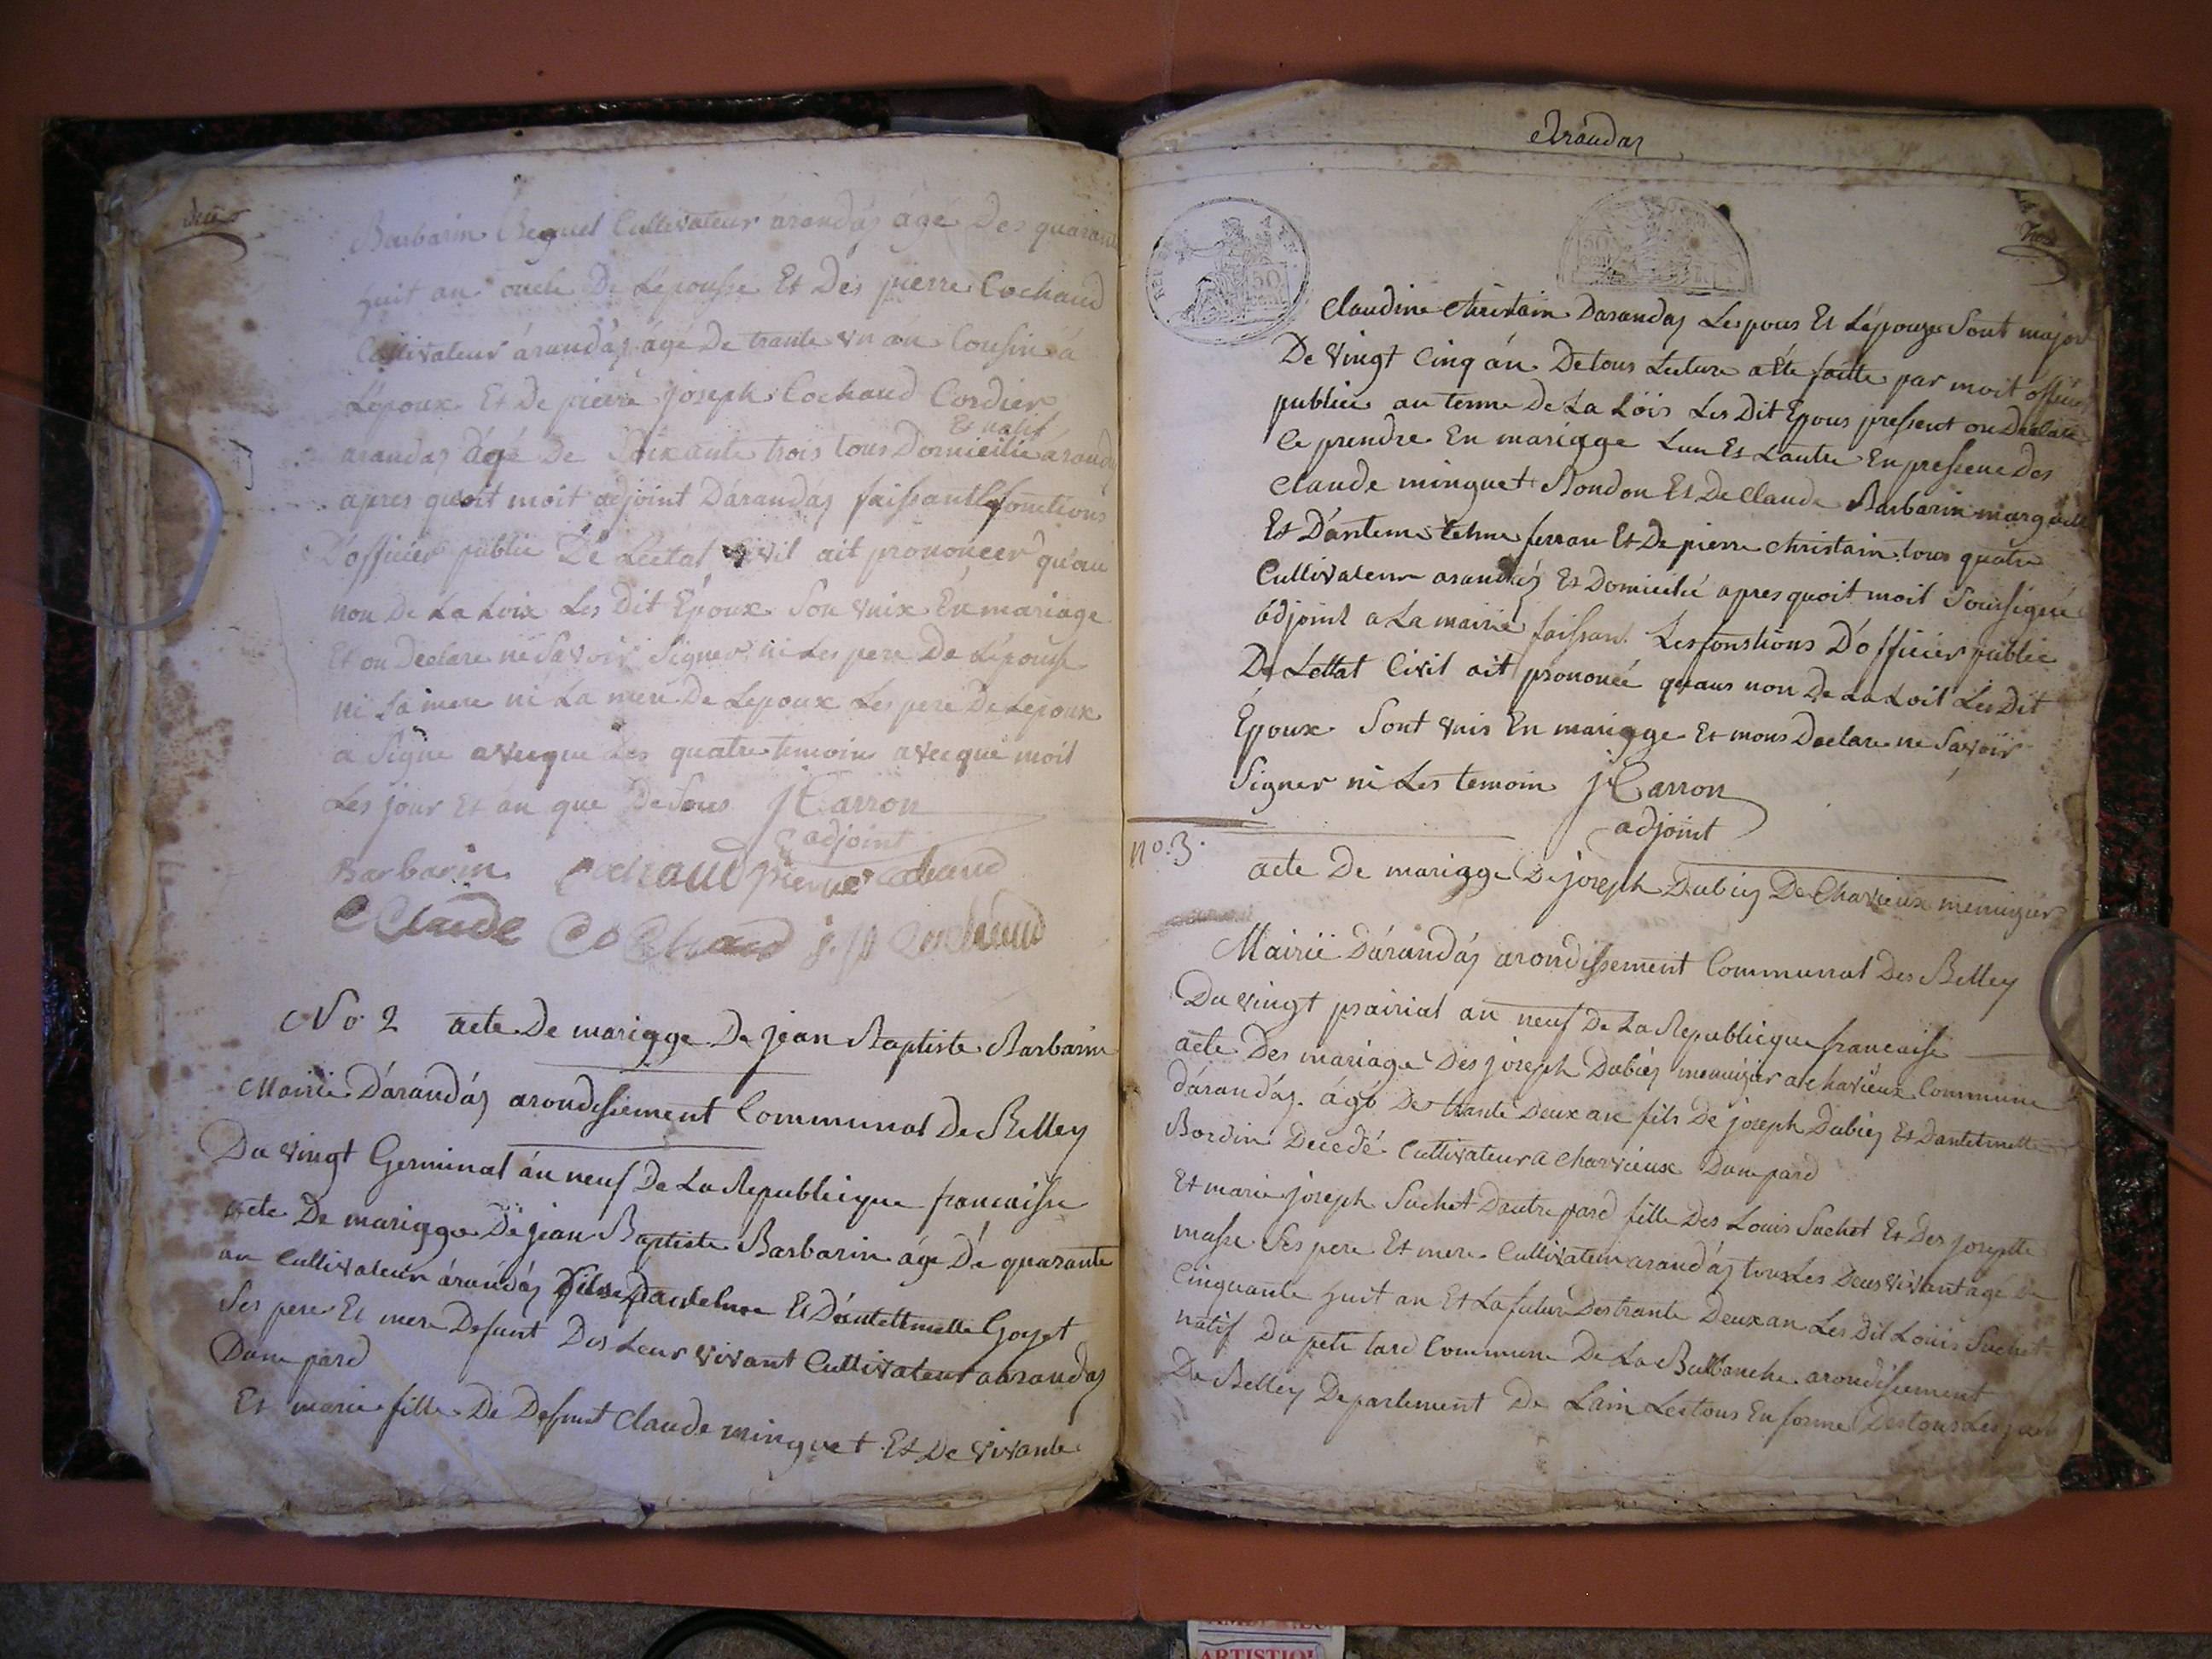 Barbarin Beguet Cultivateur arandas agé Des quarante
huit an oncle De Lepousse Et Des pierre Cochaud
Cultivateur árandás ágé De trante un an Cousin á
Lépoux Et De pierre joseph Cochaud Cordier
Et natif
arandas ágé De Soixante trois tous Domicilié arandas
apres quoit moit adjoint Dárandás faissant Les fonctions
D'officier public De Lectat Civil ait prononcer qu'au
non De La Loix Les Dit Époux Son unix En mariage
Et on Declare ne Savoir Signer ni Les pere De Lépouse
ni Sa mere ni La mere De Lepoux Les pere De Lepoux
a Signe avecque Les quatre temoins avecque moit
Les jour Et án que Desous J Carron
adjoint
Barbarin Cochaud Pierre Cochaud
Claude Cochaud j. p Cochaud
No 2 acte De mariage De jean Baptiste Barbarin
Mairie Dárandás arondissement Communal De Belley
Du vingt Germinal án neuf De La Republicque francaisse
acte De mariage De jean Baptiste Barbarin ágé Dé quarante
an Cultivateur árandás fils Dantelme Et Dántelmette Goyet
Ses pere Et mere Defunt Des Leur vivant Cultivateur aarandas
Dune pard
Et marie fille De Defunt Claude minguet Et De vivante
Arandas
50
Claudine Christain Darandas Lepous Et Lépouze Sont major
De vingt Cinq án De tous Lecture a Eté faitte par moit officier
public au terme De La Löis Les Dit Epous pressent on Declare
Ce prendre En mariage Lun Et Lautre En pressence Des
Claude minguet Rondon Et De Claude Barbarin
Et D'antemelelme ferran Et De pierre Christain tous quatre
Cultivateur arandas Et Domicilié apres quoit moit Soussigné
ádjoint a La mairie faissant Les fonstions D'officier public
De Lettat Civil ait prononcé quaus non De La Loit Les Dit
Epoux Sont unis En mariage Et mons Declare ne Savoir
Signer ni Les temoin J Carron
adjoint
no. 3. acte De mariage De joseph Dubiez De Charvieux menuizier
Mairie Dárandás arondissement Communal Des Belley
Du vingt prairial an neuf De La Republicque francaisse
acte Des mariage Des joseph Dubiez menuizier a charvieux Commune
dárandás ágé De trante Deux an fils De joseph Dubiez Et Dantelmette
Bordin Decedé Cultivateur a Charvieux Dune pard
Et marie joseph Suchet Dautre pard fille Des Louis Suchet Et Des josephte
masse Ses pere Et mere Cultivateur arandás tous Les Deux vivant age De
Cinquante huit an Et La future Des trante Deux an Les Dit Louis Suchet
natif Du peti tard Commune De La Balbanche arondissement
De Belley Departement De Lain Les tous En forme Des tous Les
ARTISTIQU